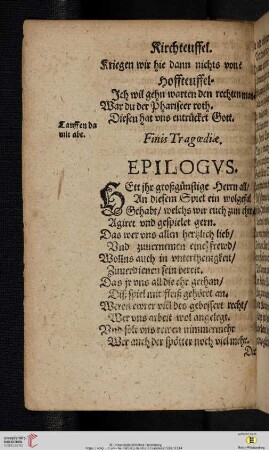 Kirchteuffel.
Kriegen wir hie dann nichts von
Hoffteuffel.
Ich wil gehn warten den rechten
War du der Phariseer roth.
Diesen hat vns entrücket Gott.
Lauffen da
mit abe.
Finis Tragœdiæ.
EPILOGVS.
HEtt jhr großgünstige Herrn all/
An diesem Spiel ein wolgefal
Gehabt/ welchs wir euch zun ehrn
Agiret vnd gespielet gern.
Das wer vns allen hertzlich lieb/
Vnd zuuernemen eine frewd/
Wollns auch in vnterthenigkeit/
Zuuerdienen sein bereit.
Das jr vns all die ehr gethan/
Diß spiel mit fleiß gehöret an.
Weren ewrer viel des gebessert recht/
Wer vns arbeit wol angelegt.
Vnd solt vns rewen nimmermehr
Wer auch der spötter noch viel mehr.